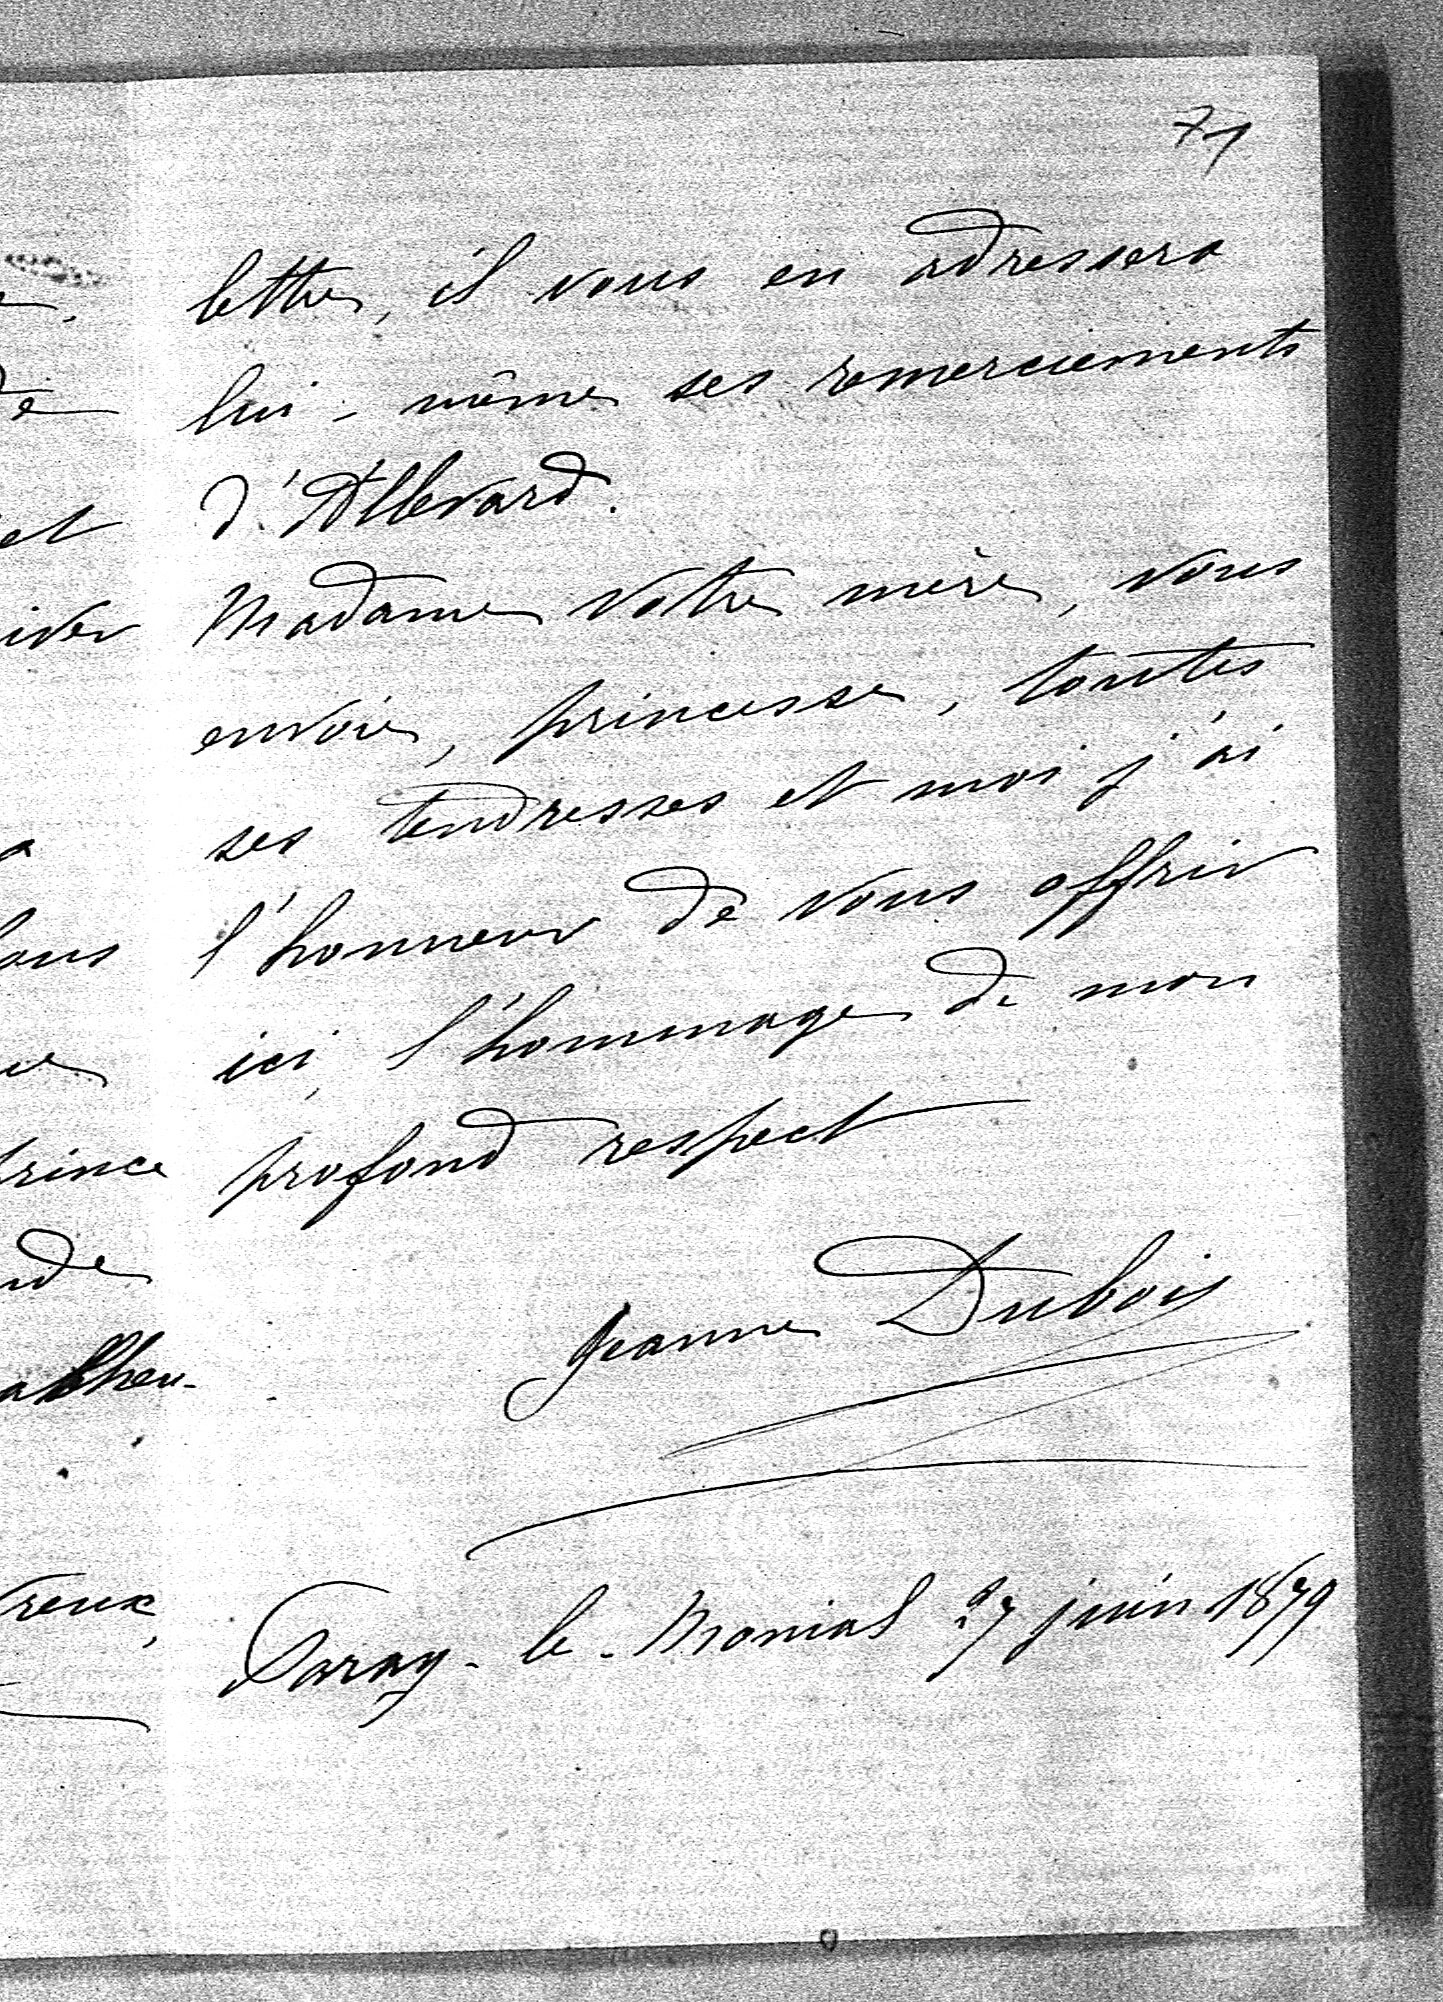 71
lettre, il vous en adressera
lui-même ses remerciements
d'Allevard.
Madame votre mère, vous
envoie, princesse, toutes
ses tendresses et moi j'ai
l'honneur de vous offrir
ici l'hommage de mon
profond respect
Jeanne Dubois
Paray-le-Monial 27 juin 1879
et
prince